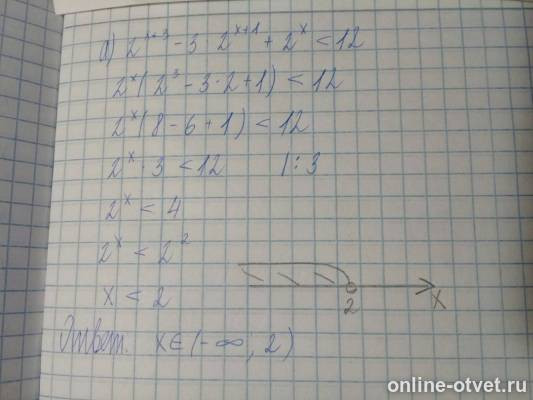 а) 2^{x+3} - 3 · 2^{x+1} + 2^x < 12
2^x (2^3 - 3 · 2 + 1) < 12
2^x (8 - 6 + 1) < 12
2^x · 3 < 12 | : 3
2^x < 4
2^x < 2^2
x < 2
2 x
Ответ. x ∈ (-∞; 2)
online-otvet.ru